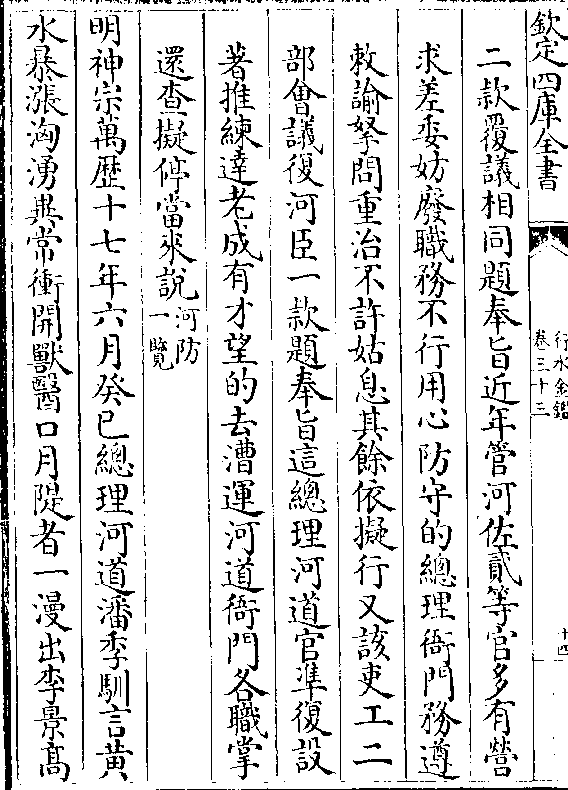 欽定四庫全書
行水金鑑
卷三十三
十四
二款覆議相同題奉旨近年管河佐貳等官多有營
求差委妨廢職務不行用心防守的總理衙門務遵
敕諭拏問重治不許姑息其餘依擬行又該吏工二
部會議復河臣一款題奉旨這總理河道官準復設
著推練達老成有才望的去漕運河道衙門各職掌
還查擬停當來說河防一覽
明神宗萬歷十七年六月癸巳總理河道潘季馴言黃
水暴漲洶湧異常衝開獸醫口月隄者一漫出李景高